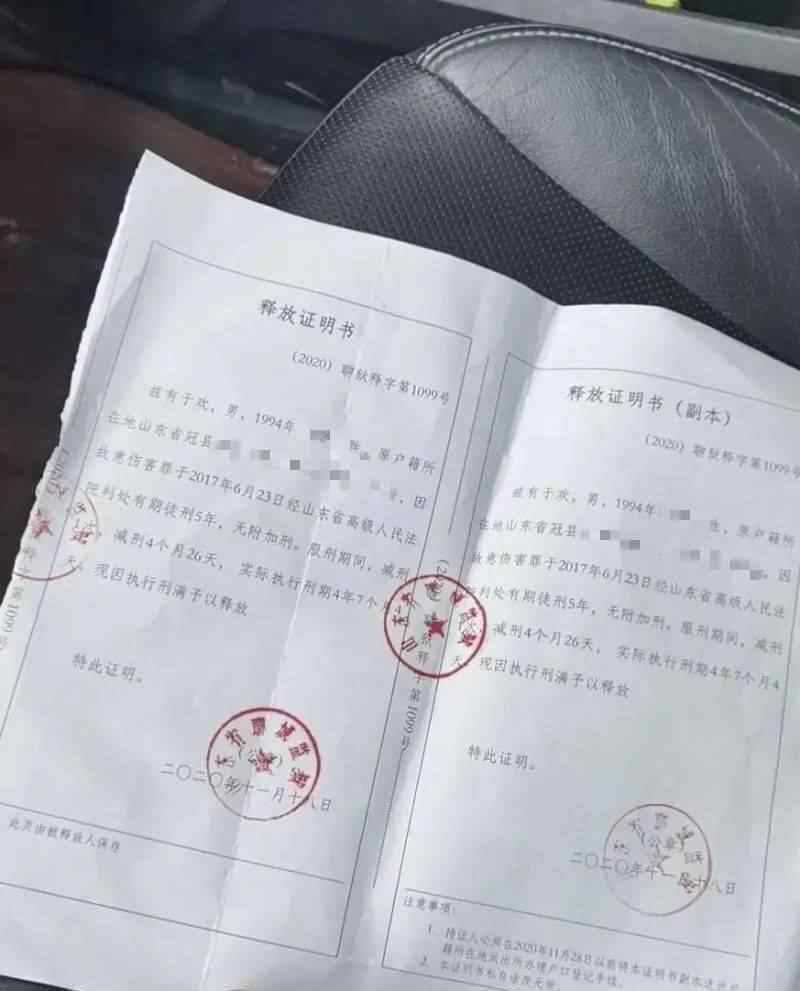 释放证明书
(2020) 聊狱释字第1099号
兹有于欢，男，1994年 生，原户籍所
在地山东省冠县 ，因
故意伤害罪于2017年6月23日经山东省高级人民法
院判处有期徒刑5年，无附加刑。服刑期间，减刑
1次，减刑4个月26天，实际执行刑期4年7个月
天。现因执行刑满予以释放
特此证明。
二〇二〇年十一月十八日
此页由被释放人保存
释字第1099号
释放证明书（副本）
(2020) 聊狱释字第1099号
兹有于欢，男，1994年 生，原户籍所
在地山东省冠县 ，因
故意伤害罪于2017年6月23日经山东省高级人民法
判处有期徒刑5年，无附加刑。服刑期间，减刑
减刑4个月26天，实际执行刑期4年7个月4
天 现因执行刑满予以释放
特此证明。
二〇二〇年十一月十八日
注意事项：
1. 持证人必须在2020年11月28日以前将本证明书副本送达
籍所在地派出所办理户口登记手续。
2. 本证明书私自涂改无效。